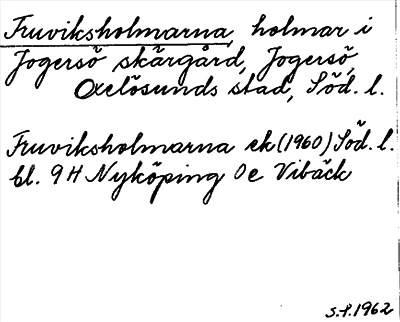 Fruviksholmarna, holmar i
Jogersö skärgård, Jogersö,
Oxelösunds stad, Söd. l.
Fruviksholmarna ek (1960) Söd. l.
bl. 9 H Nyköping 0e Vibäck
S.P. 1962